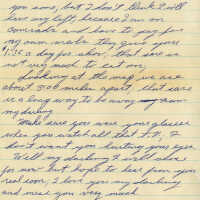 you some, but I don't think I will
have any left, because I am on
Comrats and have to pay for
my own meals they give you
a day for chow. That sure is
not very much to eat on.
Looking at the map we are
about 300 miles apart, that sure
is a long way to be away from
my darling
Make sure you wear your glasses
when you watch all that T.V., I
don't want you hurting your eyes.
Well my darling I will close
for now but hope to hear from you
real soon, I love you my darling
and need you very much